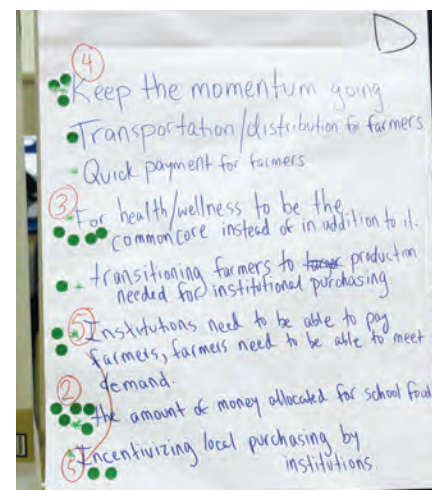 D
4
Keep the momentum going
Transportation/distribution for farmers
- Quick payment for farmers
3
For health/wellness to be the
common core instead of in addition to it.
transitioning farmers to production
needed for institutional purchasing
5
Institutions need to be able to pay
farmers, farmers need to be able to meet
demand.
2
the amount of money allocated for school food
Incentivizing local purchasing by
institutions